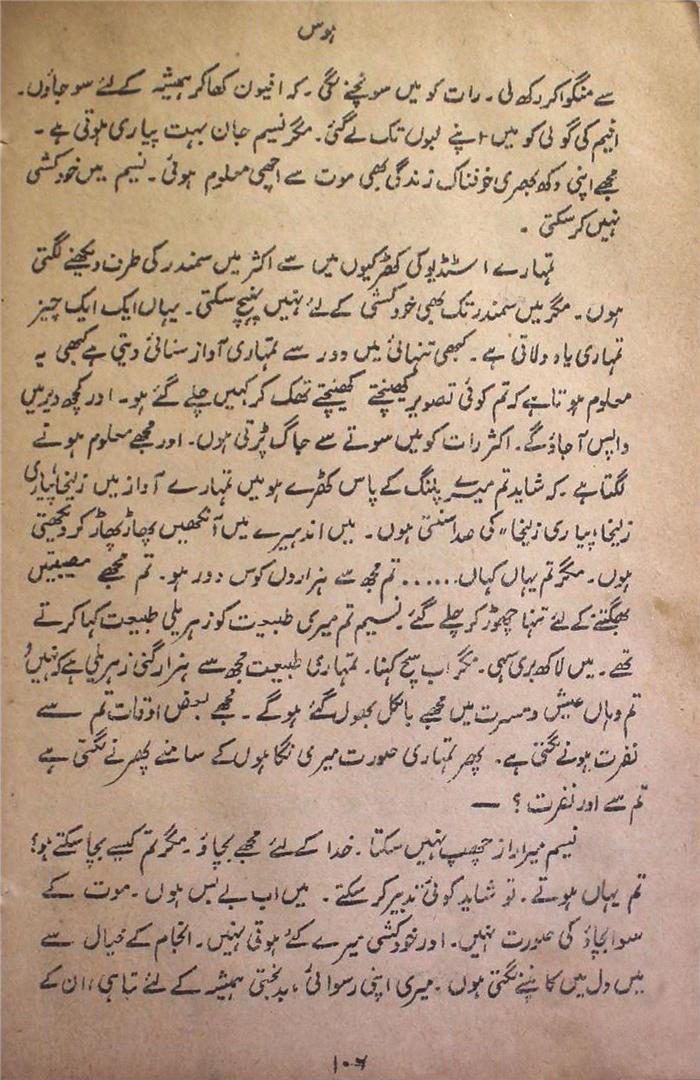 ہوس
سے منگوا کر رکھ لی۔ رات کو میں سونچنے لگی۔ کہ افیون کھا کر ہمیشہ کے لئے سو جاؤں۔
افیم کی گولی کو میں اپنے لبوں تک لے گئی۔ مگر نسیم جان بہت پیاری ہوتی ہے۔
مجھے اپنی دکھ بھری خوفناک زندگی بھی موت سے اچھی معلوم ہوئی۔ نسیم میں خودکشی
نہیں کر سکتی۔
تمہارے اسٹڈیو کی کھڑکیوں میں سے اکثر میں سمندر کی طرف دیکھنے لگتی
ہوں۔ مگر میں سمندر تک بھی خودکشی کے لئے نہیں پہنچ سکتی۔ یہاں ایک ایک چیز
تمہاری یاد دلاتی ہے۔ کبھی تنہائی میں دور سے تمہاری آواز سنائی دیتی ہے کبھی یہ
معلوم ہوتا ہے کہ تم کوئی تصویر کھینچتے کھینچتے تھک کر کہیں چلے گئے ہو۔ اور کچھ دیر میں
واپس آ جاؤ گے۔ اکثر رات کو میں سوتے سے جاگ پڑتی ہوں۔ اور مجھے معلوم ہونے
لگتا ہے۔ کہ شاید تم میرے پلنگ کے پاس کھڑے ہو میں تمہارے آواز میں زلیخا پیاری
زلیخا، پیاری زلیخا" کی صدا سنتی ہوں۔ میں اندہیرے میں آنکھیں پھاڑ پھاڑ کر دیکھتی
ہوں۔ مگر تم یہاں کہاں...... تم مجھ سے ہزاروں کوس دور ہو۔ تم مجھے مصیبتیں
بھگتنے کے لئے تنہا چھوڑ کر چلے گئے۔ نسیم تم میری طبیعت کو زہریلی طبیعت کہا کرتے
تھے۔ میں لاکھ بری سہی۔ مگر اب سچ کہنا۔ تمہاری طبیعت مجھ سے ہزار گنی زہریلی ہے کہ نہیں؟
تم وہاں عیش و مسرت میں مجھے بالکل بھول گئے ہو گے۔ مجھے بعض اوقات تم سے
نفرت ہونے لگتی ہے۔ پھر تمہاری صورت میری نگاہوں کے سامنے پھرنے لگتی ہے
تم سے اور نفرت؟ —
نسیم میرا راز چھپ نہیں سکتا۔ خدا کے لئے مجھے بچاؤ۔ مگر تم کیسے بچا سکتے ہو؟
تم یہاں ہوتے۔ تو شاید کوئی تدبیر کر سکتے۔ میں اب بے بس ہوں۔ موت کے
سوا بچاؤ کی صورت نہیں۔ اور خودکشی میرے کئے ہوتی نہیں۔ انجام کے خیال سے
میں دل میں کانپنے لگتی ہوں۔ میری اپنی رسوائی، بدبختی ہمیشہ کے لئے تباہی، ان کے